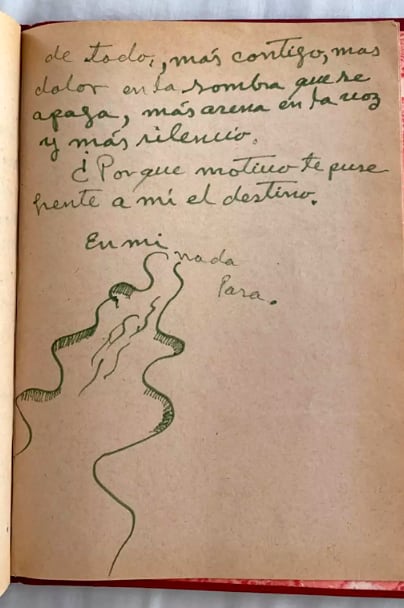 de todo, más contigo, mas
dolor en la sombra que se
apaga, más arena en la voz
y más silencio.
¿Por que motivo te puse
frente a mi el destino.
En mi
nada
Para.